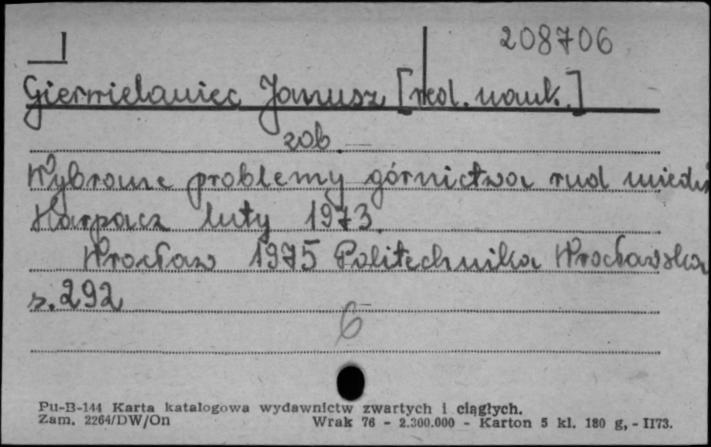 208706
Gierwielaniec Janusz [red. nauk.]
zob.
Wybrane problemy górnictwa rud miedzi
Karpacz luty 1973.
Wrocław 1975 Politechnika Wrocławska
s. 292
6
Pu-B-144 Karta katalogowa wydawnictw zwartych i ciągłych.
Zam. 2264/DW/On Wrak 76 - 2.300.000 - Karton 5 kl. 180 g, - II73.